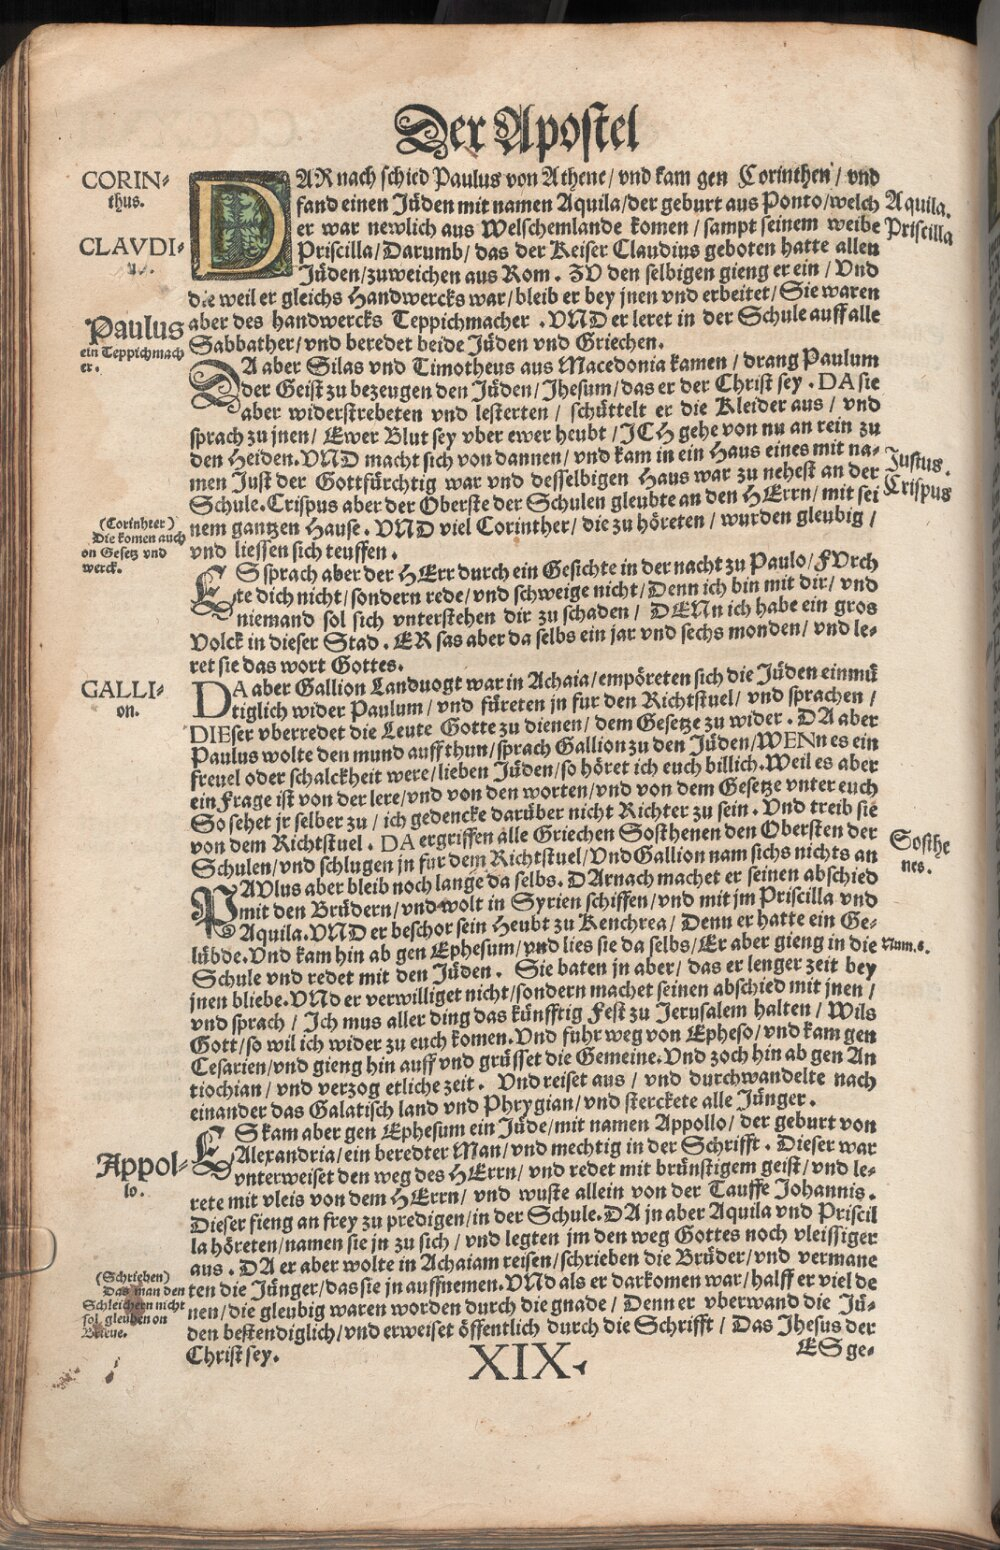 Der Apostel
CORIN-
thus.
CLAVDI-
us.
Paulus
ein Teppichmach
er.
DARnach schied Paulus von Athene/ vnd kam gen Corinthen/ vnd
fand einen Jüden mit namen Aquila/der geburt aus Ponto/welch
er war newlich aus Welschemlande komen/ sampt seinem weibe
Priscilla/Darumb/das der Keiser Claudius geboten hatte allen
Jüden/zuweichen aus Rom. ZV den selbigen gieng er ein/ Vnd
die weil er gleichs Handwercks war/bleib er bey jnen vnd erbeitet/Sie waren
aber des handwercks Teppichmacher. VND er leret in der Schule auff alle
Sabbather/vnd beredet beide Jüden vnd Griechen.
Aquila.
Priscilla
DA aber Silas vnd Timotheus aus Macedonia kamen/ drang Paulum
der Geist zu bezeugen den Jüden/Jhesum/das er der Christ sey. DA sie
aber widerstrebeten vnd lesterten/ schüttelt er die Kleider aus/ vnd
sprach zu jnen/ Ewer Blut sey vber ewer heubt/JCH gehe von nu an rein zu
den Heiden.VND macht sich von dannen/ vnd kam in ein Haus eines mit na-
men Just der Gottfürchtig war vnd desselbigen Haus war zu nehest an der
Schule.Crispus aber der Oberste der Schulen gleubte an den HErrn/mit sei
nem gantzen Hause. VND viel Corinther/die zu höreten/ wurden gleubig/
vnd liessen sich teuffen.
Justus.
Crispus
(Corinhter)
Die komen auch
on Gesetz vnd
werck.
ES sprach aber der HErr durch ein Gesichte in der nacht zu Paulo/FVrch
te dich nicht/sondern rede/vnd schweige nicht/Denn ich bin mit dir/ vnd
niemand sol sich vnterstehen dir zu schaden/ DENn ich habe ein gros
Volck in dieser Stad. ER sas aber da selbs ein jar vnd sechs monden/ vnd le-
ret sie das wort Gottes.
GALLI-
on.
DA aber Gallion Landuogt war in Achaia/empöreten sich die Jüden einmü
tiglich wider Paulum/ vnd füreten jn fur den Richtstuel/ vnd sprachen/
DIEser vberredet die Leute Gotte zu dienen/ dem Gesetze zu wider. DA aber
Paulus wolte den mund auffthun/sprach Gallion zu den Jüden/WENn es ein
freuel oder schalckheit were/lieben Jüden/so höret ich euch billich.Weil es aber
ein Frage ist von der lere/vnd von den worten/vnd von dem Gesetze vnter euch
So sehet jr selber zu/ ich gedencke darüber nicht Richter zu sein. Vnd treib sie
von dem Richtstuel. DA ergriffen alle Griechen Sosthenen den Obersten der
Schulen/vnd schlugen jn fur dem Richtstuel/Vnd Gallion nam sichs nichts an
Sosthe
nes.
PAVlus aber bleib noch lange da selbs. DArnach machet er seinen abschied
mit den Brüdern/vnd wolt in Syrien schiffen/vnd mit jm Priscilla vnd
Aquila.VND er beschor sein Heubt zu Kenchrea/ Denn er hatte ein Ge-
lübde.Vnd kam hin ab gen Ephesum/vnd lies sie da selbs/Er aber gieng in die
Schule vnd redet mit den Jüden. Sie baten jn aber/ das er lenger zeit bey
jnen bliebe.VNd er verwilliget nicht/sondern machet seinen abschied mit jnen/
vnd sprach/ Ich mus aller ding das künfftig Fest zu Jerusalem halten/ Wils
Gott/so wil ich wider zu euch komen.Vnd fuhr weg von Epheso/vnd kam gen
Cesarien/vnd gieng hin auff vnd grüsset die Gemeine.Vnd zoch hin ab gen An
tiochian/ vnd verzog etliche zeit. Vnd reiset aus/ vnd durchwandelte nach
einander das Galatisch land vnd Phrygian/vnd sterckete alle Jünger.
Num.6.
Appol-
lo.
ES kam aber gen Ephesum ein Jüde/mit namen Appollo/ der geburt von
Alexandria/ein beredter Man/vnd mechtig in der Schrifft. Dieser war
vnterweiset den weg des HErrn/ vnd redet mit brünstigem geist/vnd le-
rete mit vleis von dem HErrn/ vnd wuste allein von der Tauffe Johannis.
Dieser fieng an frey zu predigen/in der Schule.DA jn aber Aquila vnd Priscil
la höreten/namen sie jn zu sich/ vnd legten jm den weg Gottes noch vleissiger
aus. DA er aber wolte in Achaiam reisen/schrieben die Brüder/vnd vermane
ten die Jünger/das sie jn auffnemen.VNd als er darkomen war/halff er viel de
nen/die gleubig waren worden durch die gnade/ Denn er vberwand die Jü-
den bestendiglich/vnd erweiset öffentlich durch die Schrifft/ Das Jhesus der
Christ sey.
(Schrieben)
Das man den
Schleichern nicht
sol gleuben on
Brieue.
XIX.
ES ge-